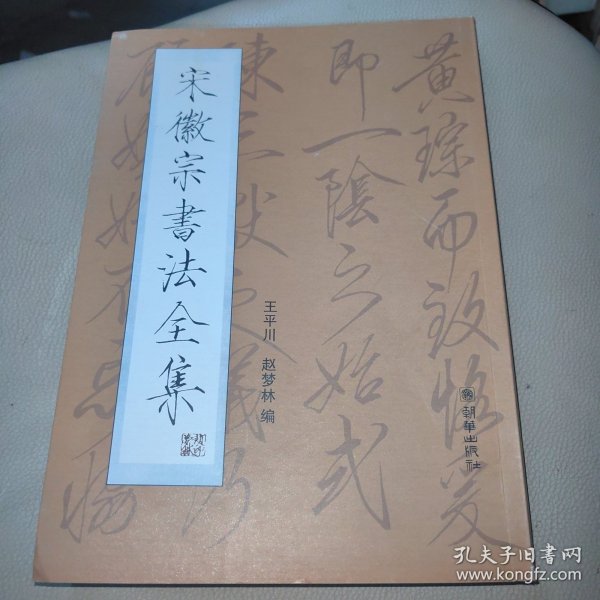 宋徽宗書法全集
王平川 赵梦林 编
朝華出版社
黄琮而致恪爰
即一陰之始式
陳三獻之儀乃
孔夫子旧书网
www.kongfz.com